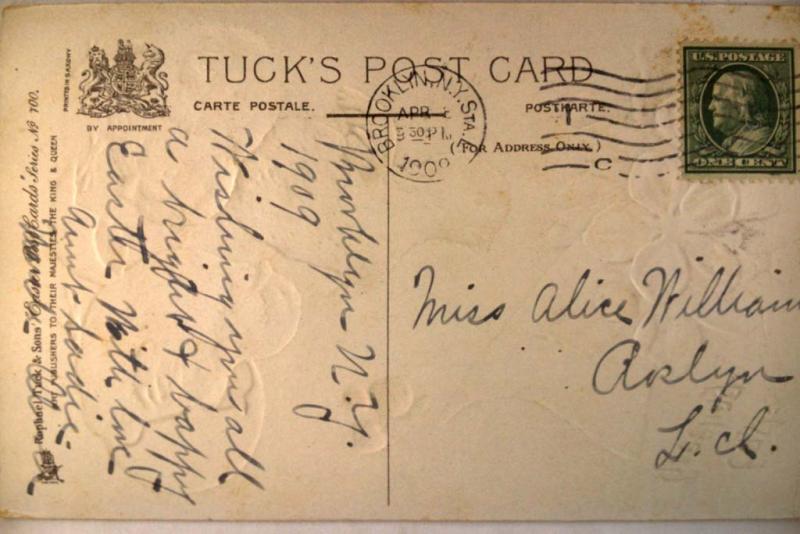 TUCK'S POST CARD
CARTE POSTALE.
POSTKARTE.
(FOR ADDRESS ONLY.)
BY APPOINTMENT
PRINTED IN SAXONY
Raphael Tuck & Sons' Easter Post Cards Series No 700.
ART PUBLISHERS TO THEIR MAJESTIES THE KING & QUEEN
BROOKLYN, N.Y. STA.
APR
30 PM
1909
C
U.S. POSTAGE
ONE CENT
Brooklyn N.Y.
1909
Wishing you all
a bright & happy
Easter With love
Aunt Sadie.
Miss Alice William
Roslyn
L.I.